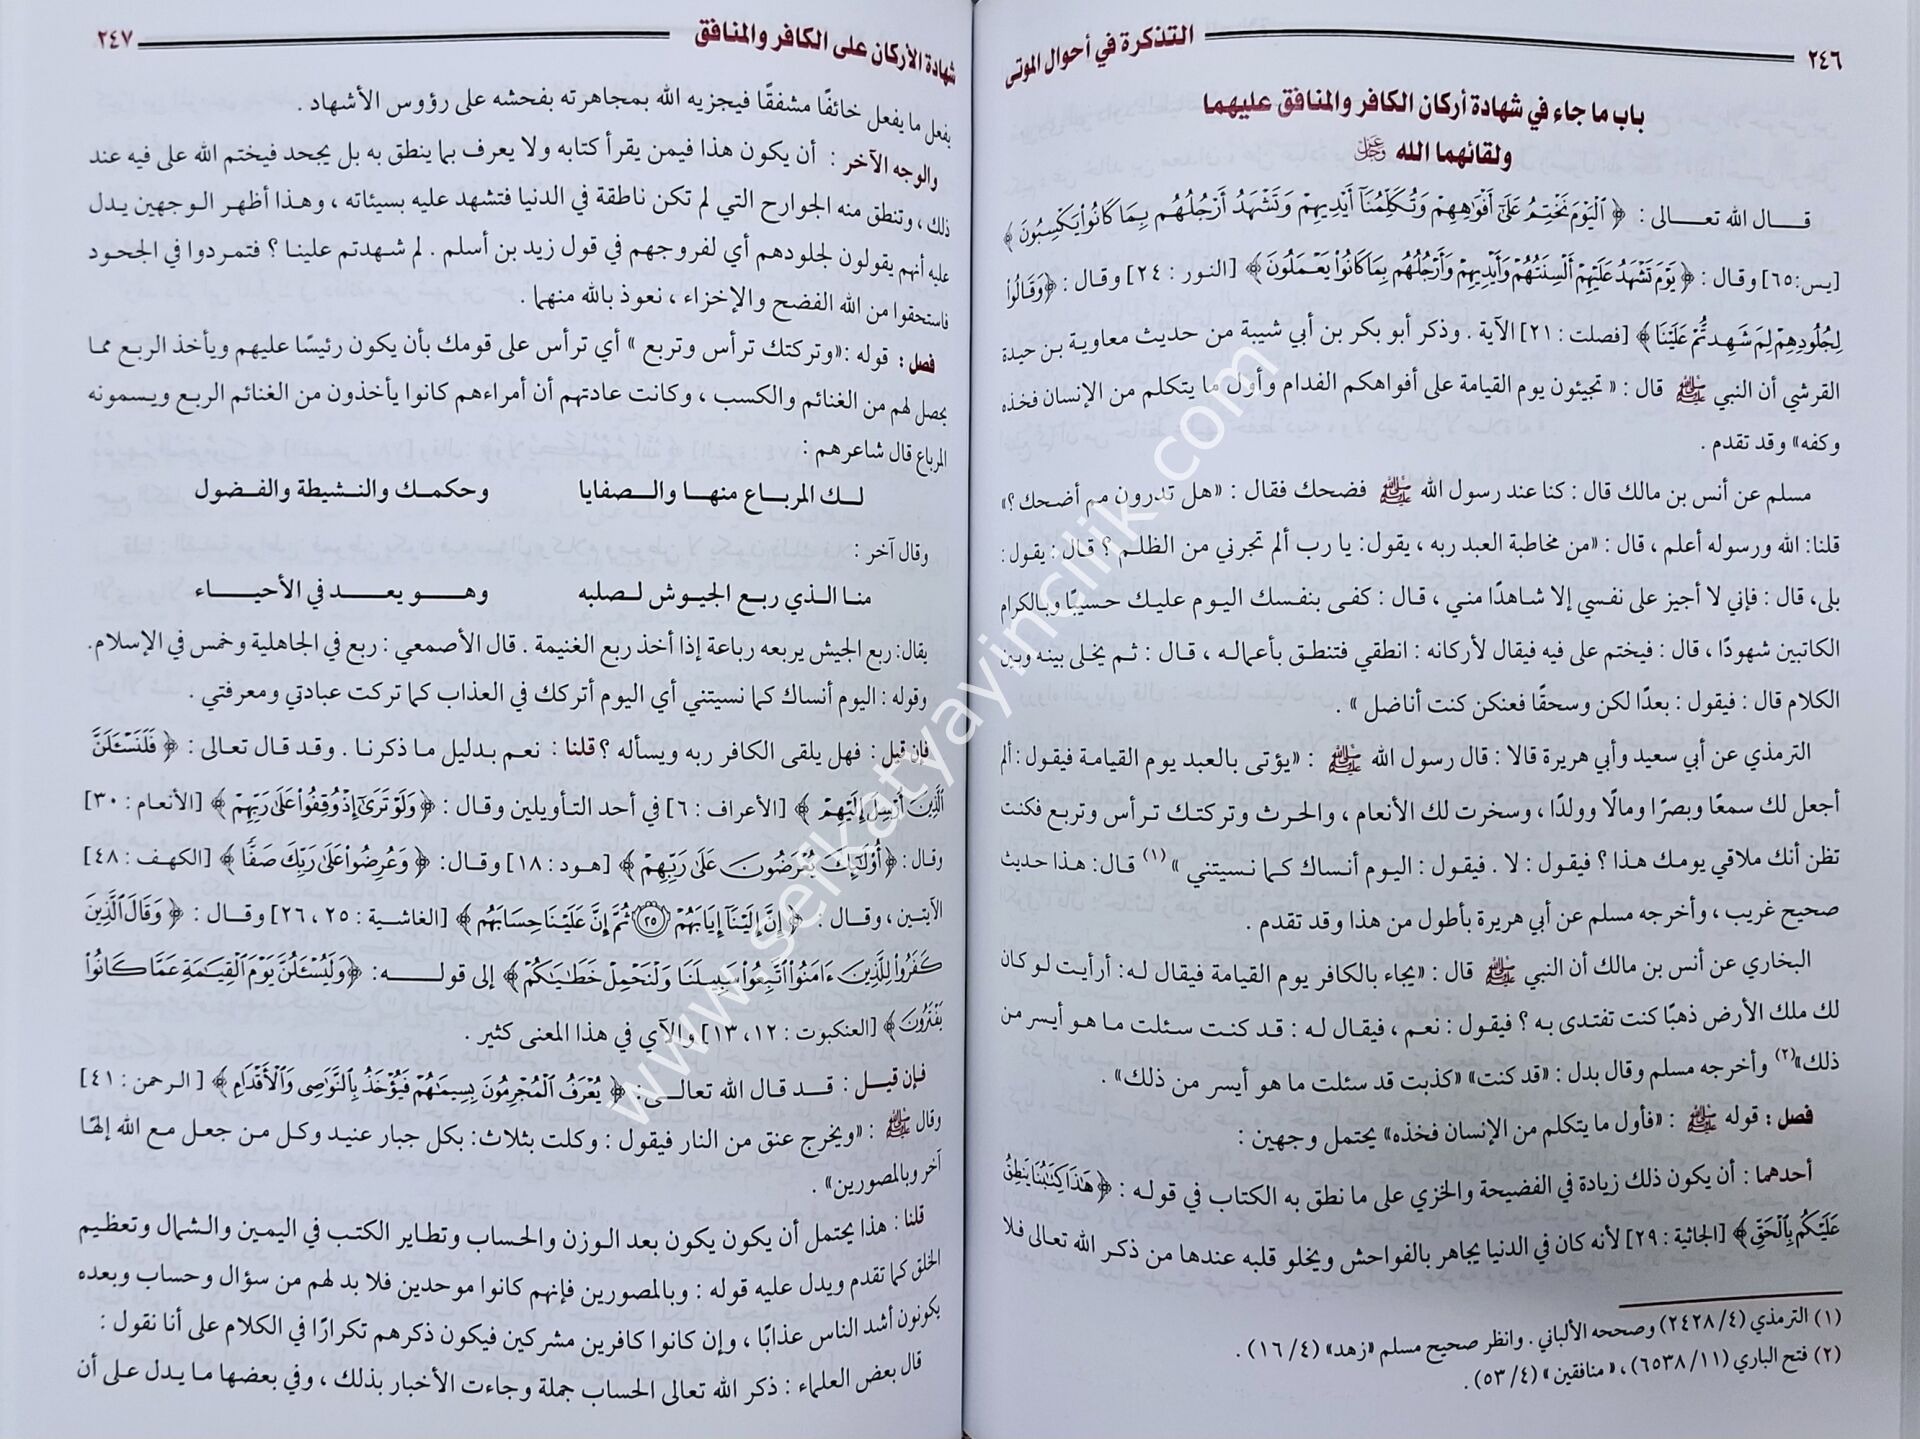 ٢٤٦
التذكرة في أحوال الموتى
باب ما جاء في شهادة أركان الكافر والمنافق عليهما
ولقائهما الله عز وجل
قال الله تعالى : ﴿ ٱلْيَوْمَ نَخْتِمُ عَلَىٰٓ أَفْوَٰهِهِمْ وَتُكَلِّمُنَآ أَيْدِيهِمْ وَتَشْهَدُ أَرْجُلُهُم بِمَا كَانُوا۟ يَكْسِبُونَ ﴾
[يس:٦٥] وقال : ﴿ يَوْمَ تَشْهَدُ عَلَيْهِمْ أَلْسِنَتُهُمْ وَأَيْدِيهِمْ وَأَرْجُلُهُم بِمَا كَانُوا۟ يَعْمَلُونَ ﴾ [النور : ٢٤] وقال : ﴿ وَقَالُوا۟
لِجُلُودِهِمْ لِمَ شَهِدتُّمْ عَلَيْنَا ﴾ [فصلت : ٢١] الآية . وذكر أبو بكر بن أبي شيبة من حديث معاوية بن حيدة
القرشي أن النبي ﷺ قال : « تجيئون يوم القيامة على أفواهكم الفدام وأول ما يتكلم من الإنسان فخذه
وكفه» وقد تقدم .
مسلم عن أنس بن مالك قال : كنا عند رسول الله ﷺ فضحك فقال : «هل تدرون مم أضحك ؟»
قلنا: الله ورسوله أعلم ، قال : «من مخاطبة العبد ربه ، يقول: يا رب ألم تجرني من الظلم ؟ قال : يقول :
بلى، قال : فإني لا أجيز على نفسي إلا شاهدًا مني ، قال : كفى بنفسك اليوم عليك حسيبًا وبالكرام
الكاتبين شهودًا ، قال : فيختم على فيه فيقال لأركانه : انطقي فتنطق بأعماله ، قال : ثم يخلى بينه وبين
الكلام قال : فيقول : بعدًا لكن وسحقًا فعنكن كنت أناضل » .
الترمذي عن أبي سعيد وأبي هريرة قالا : قال رسول الله ﷺ : «يؤتى بالعبد يوم القيامة فيقول : ألم
أجعل لك سمعًا وبصرًا ومالًا وولدًا ، وسخرت لك الأنعام ، والحرث وتركتك ترأس وتربع فكنت
تظن أنك ملاقي يومك هذا ؟ فيقول : لا . فيقول : اليوم أنساك كما نسيتني » (١) قال : هذا حديث
صحيح غريب ، وأخرجه مسلم عن أبي هريرة بأطول من هذا وقد تقدم .
البخاري عن أنس بن مالك أن النبي ﷺ قال : «يجاء بالكافر يوم القيامة فيقال له : أرأيت لو كان
لك ملك الأرض ذهبًا كنت تفتدى به ؟ فيقول : نعم ، فيقال له : قد كنت سئلت ما هو أيسر من
ذلك»(٢) وأخرجه مسلم وقال بدل : «قد كنت» «كذبت قد سئلت ما هو أيسر من ذلك» .
فصل : قوله ﷺ : «فأول ما يتكلم من الإنسان فخذه» يحتمل وجهين :
أحدهما : أن يكون ذلك زيادة في الفضيحة والخزي على ما نطق به الكتاب في قوله : ﴿ هَٰذَا كِتَٰبُنَا يَنطِقُ
عَلَيْكُم بِٱلْحَقِّ ﴾ [الجاثية : ٢٩] لأنه كان في الدنيا يجاهر بالفواحش ويخلو قلبه عندها من ذكر الله تعالى فلا
(١) الترمذي (٢٤٢٨/٤) وصححه الألباني . وانظر صحيح مسلم «زهد» (٤ /١٦) .
(٢) فتح الباري (١١ /٦٥٣٨) ، « منافقين » (٤ /٥٣) .
شهادة الأركان على الكافر والمنافق
٢٤٧
يفعل ما يفعل خائفًا مشفقًا فيجزيه الله بمجاهرته بفحشه على رؤوس الأشهاد .
والوجه الآخر : أن يكون هذا فيمن يقرأ كتابه ولا يعرف بما ينطق به بل يجحد فيختم الله على فيه عند
ذلك ، وتنطق منه الجوارح التي لم تكن ناطقة في الدنيا فتشهد عليه بسيئاته ، وهذا أظهر الوجهين يدل
عليه أنهم يقولون لجلودهم أي لفروجهم في قول زيد بن أسلم . لم شهدتم علينا ؟ فتمردوا في الجحود
فاستحقوا من الله الفضح والإخزاء ، نعوذ بالله منهما .
فصل : قوله :«وتركتك ترأس وتربع » أي ترأس على قومك بأن يكون رئيسًا عليهم ويأخذ الربع مما
يحصل لهم من الغنائم والكسب ، وكانت عادتهم أن أمراءهم كانوا يأخذون من الغنائم الربع ويسمونه
المرباع قال شاعرهم :
لك المرباع منها والصفايا وحكمك والنشيطة والفضول
وقال آخر :
منا الذي ربع الجيوش لصلبه وهو يعد في الأحياء
يقال: ربع الجيش يربعه رباعة إذا أخذ ربع الغنيمة . قال الأصمعي : ربع في الجاهلية وخمس في الإسلام.
وقوله : اليوم أنساك كما نسيتني أي اليوم أتركك في العذاب كما تركت عبادتي ومعرفتي .
فإن قيل : فهل يلقى الكافر ربه ويسأله ؟ قلنا : نعم بدليل ما ذكرنا . وقد قال تعالى : ﴿ فَلَنَسْـَٔلَنَّ
ٱلَّذِينَ أُرْسِلَ إِلَيْهِمْ ﴾ [الأعراف : ٦] في أحد التأويلين وقال : ﴿ وَلَوْ تَرَىٰٓ إِذْ وُقِفُوا۟ عَلَىٰ رَبِّهِمْ ﴾ [الأنعام : ٣٠]
وقال : ﴿ أُو۟لَٰٓئِكَ يُعْرَضُونَ عَلَىٰ رَبِّهِمْ ﴾ [هود : ١٨] وقال : ﴿ وَعُرِضُوا۟ عَلَىٰ رَبِّكَ صَفًّا ﴾ [الكهف : ٤٨]
الآيتين ، وقال : ﴿ إِنَّ إِلَيْنَآ إِيَابَهُمْ ٢٥ ثُمَّ إِنَّ عَلَيْنَا حِسَابَهُم ﴾ [الغاشية : ٢٥ ، ٢٦] وقال : ﴿ وَقَالَ ٱلَّذِينَ
كَفَرُوا۟ لِلَّذِينَ ءَامَنُوا۟ ٱتَّبِعُوا۟ سَبِيلَنَا وَلْنَحْمِلْ خَطَٰيَٰكُمْ ﴾ إلى قوله : ﴿ وَلَيُسْـَٔلُنَّ يَوْمَ ٱلْقِيَٰمَةِ عَمَّا كَانُوا۟
يَفْتَرُونَ ﴾ [العنكبوت : ١٢ ، ١٣] والآي في هذا المعنى كثير .
فإن قيل : قد قال الله تعالى : ﴿ يُعْرَفُ ٱلْمُجْرِمُونَ بِسِيمَٰهُمْ فَيُؤْخَذُ بِٱلنَّوَٰصِى وَٱلْأَقْدَامِ ﴾ [ الرحمن : ٤١]
وقال ﷺ : «ويخرج عنق من النار فيقول : وكلت بثلاث: بكل جبار عنيد وكل من جعل مع الله إلهًا
آخر وبالمصورين» .
قلنا : هذا يحتمل أن يكون يكون بعد الوزن والحساب وتطاير الكتب في اليمين والشمال وتعظيم
الخلق كما تقدم ويدل عليه قوله : وبالمصورين فإنهم كانوا موحدين فلا بد لهم من سؤال وحساب وبعده
يكونون أشد الناس عذابًا ، وإن كانوا كافرين مشركين فيكون ذكرهم تكرارًا في الكلام على أنا نقول :
قال بعض العلماء : ذكر الله تعالى الحساب جملة وجاءت الأخبار بذلك ، وفي بعضها ما يدل على أن
www.sefkatyayincilik.com